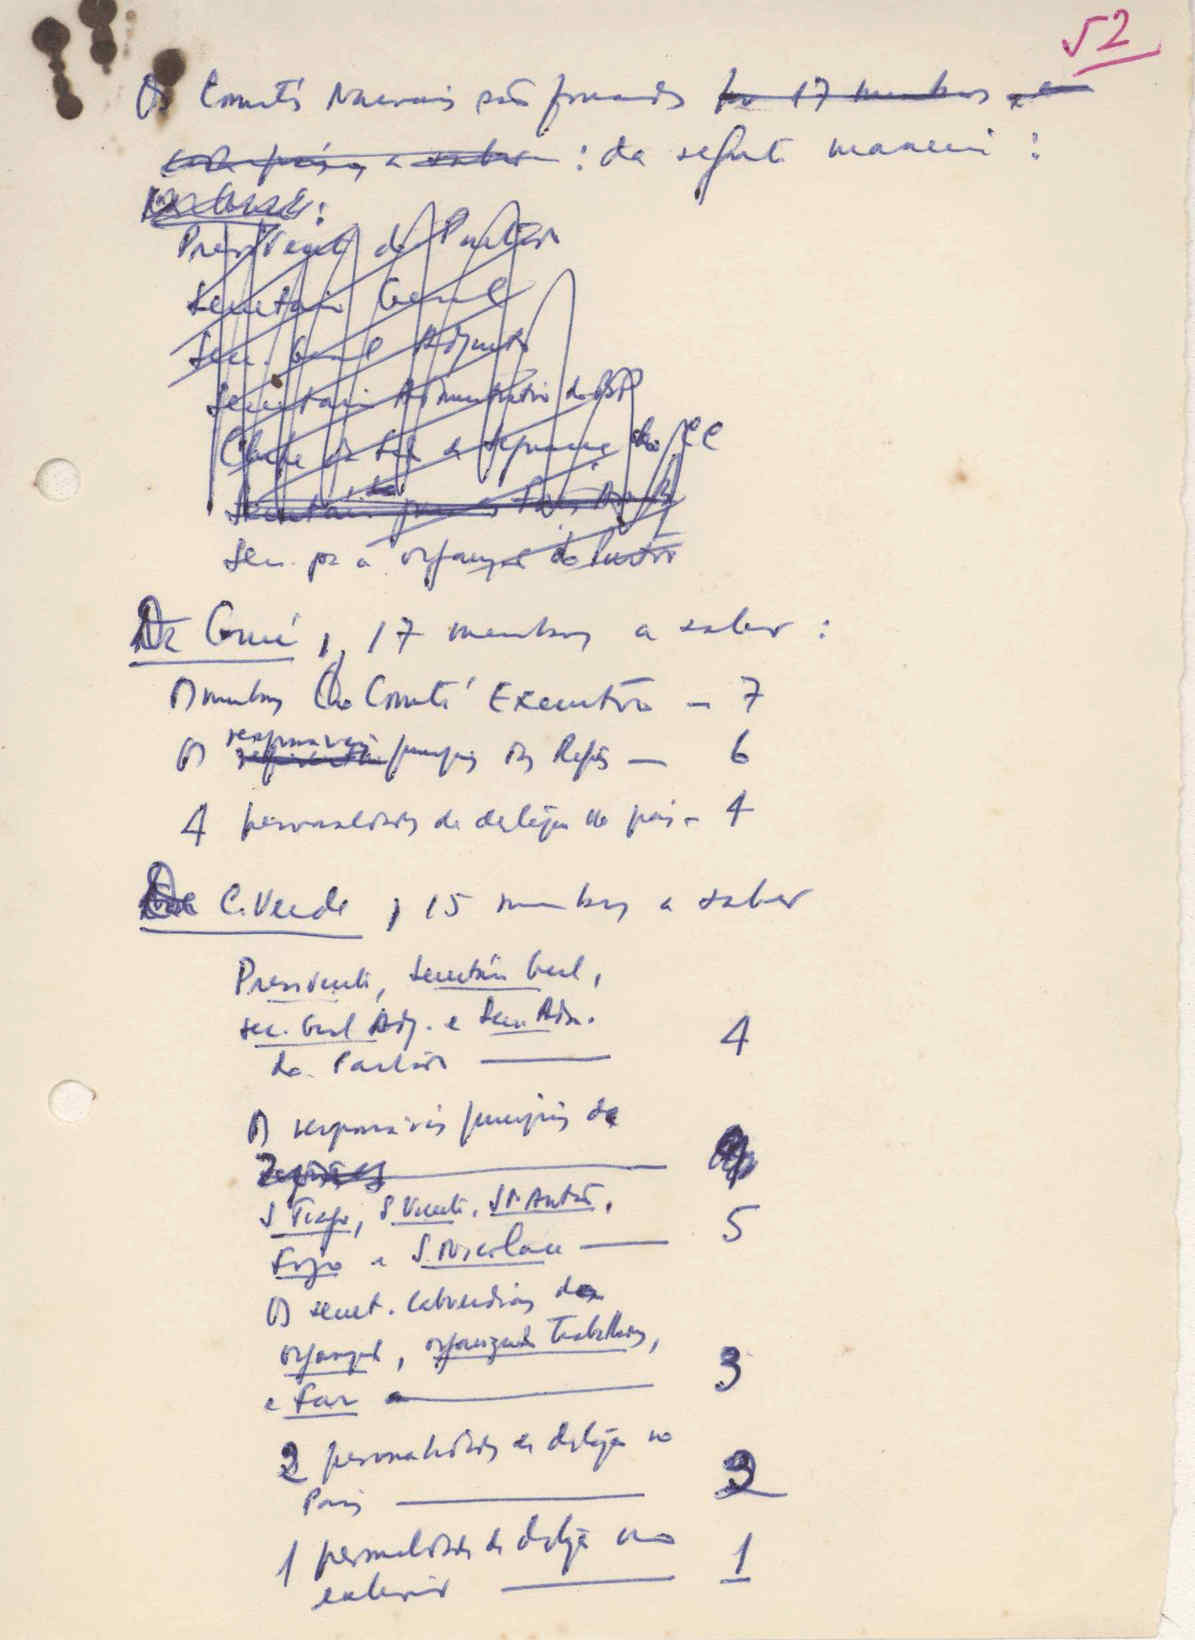 52
Os Comités Nacionais são formados por 17 membros, e
a saber: da segte maneira:
Presidente do Partido
Secretario Geral
Sec. Geral Adjunto
Secretario Administrativo do
Chefe da de Segurança do CC
Sec. pa a organização do Partido
Da Guiné, 17 membros a saber:
Os membros do Comité Executivo — 7
Os responsáveis principais das Regiões — 6
4 personalidades de destaque no país — 4
De C. Verde, 15 membros a saber
Presidente, Secretário Geral,
Sec. Geral Adj. e Secr. Adm.
do Partido — 4
Os responsáveis principais de
S. Tiago, S. Vicente, Sto Antão,
Fogo e S. Nicolau — 5
Os secret. caboverdianos da
organização, organizações Trabalhadores,
e Far — 3
2 personalidades de destaque no
País — 2
1 personalidade de destaque no
exterior — 1